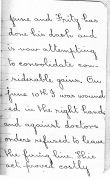 June and Fritz has
done his dash and
is now attempting
to consolidate con-
-siderable gains. On
June 10th I was wound
-ed in the right hand
and against doctors
orders refused to leave
the firing line. This
act proved costly